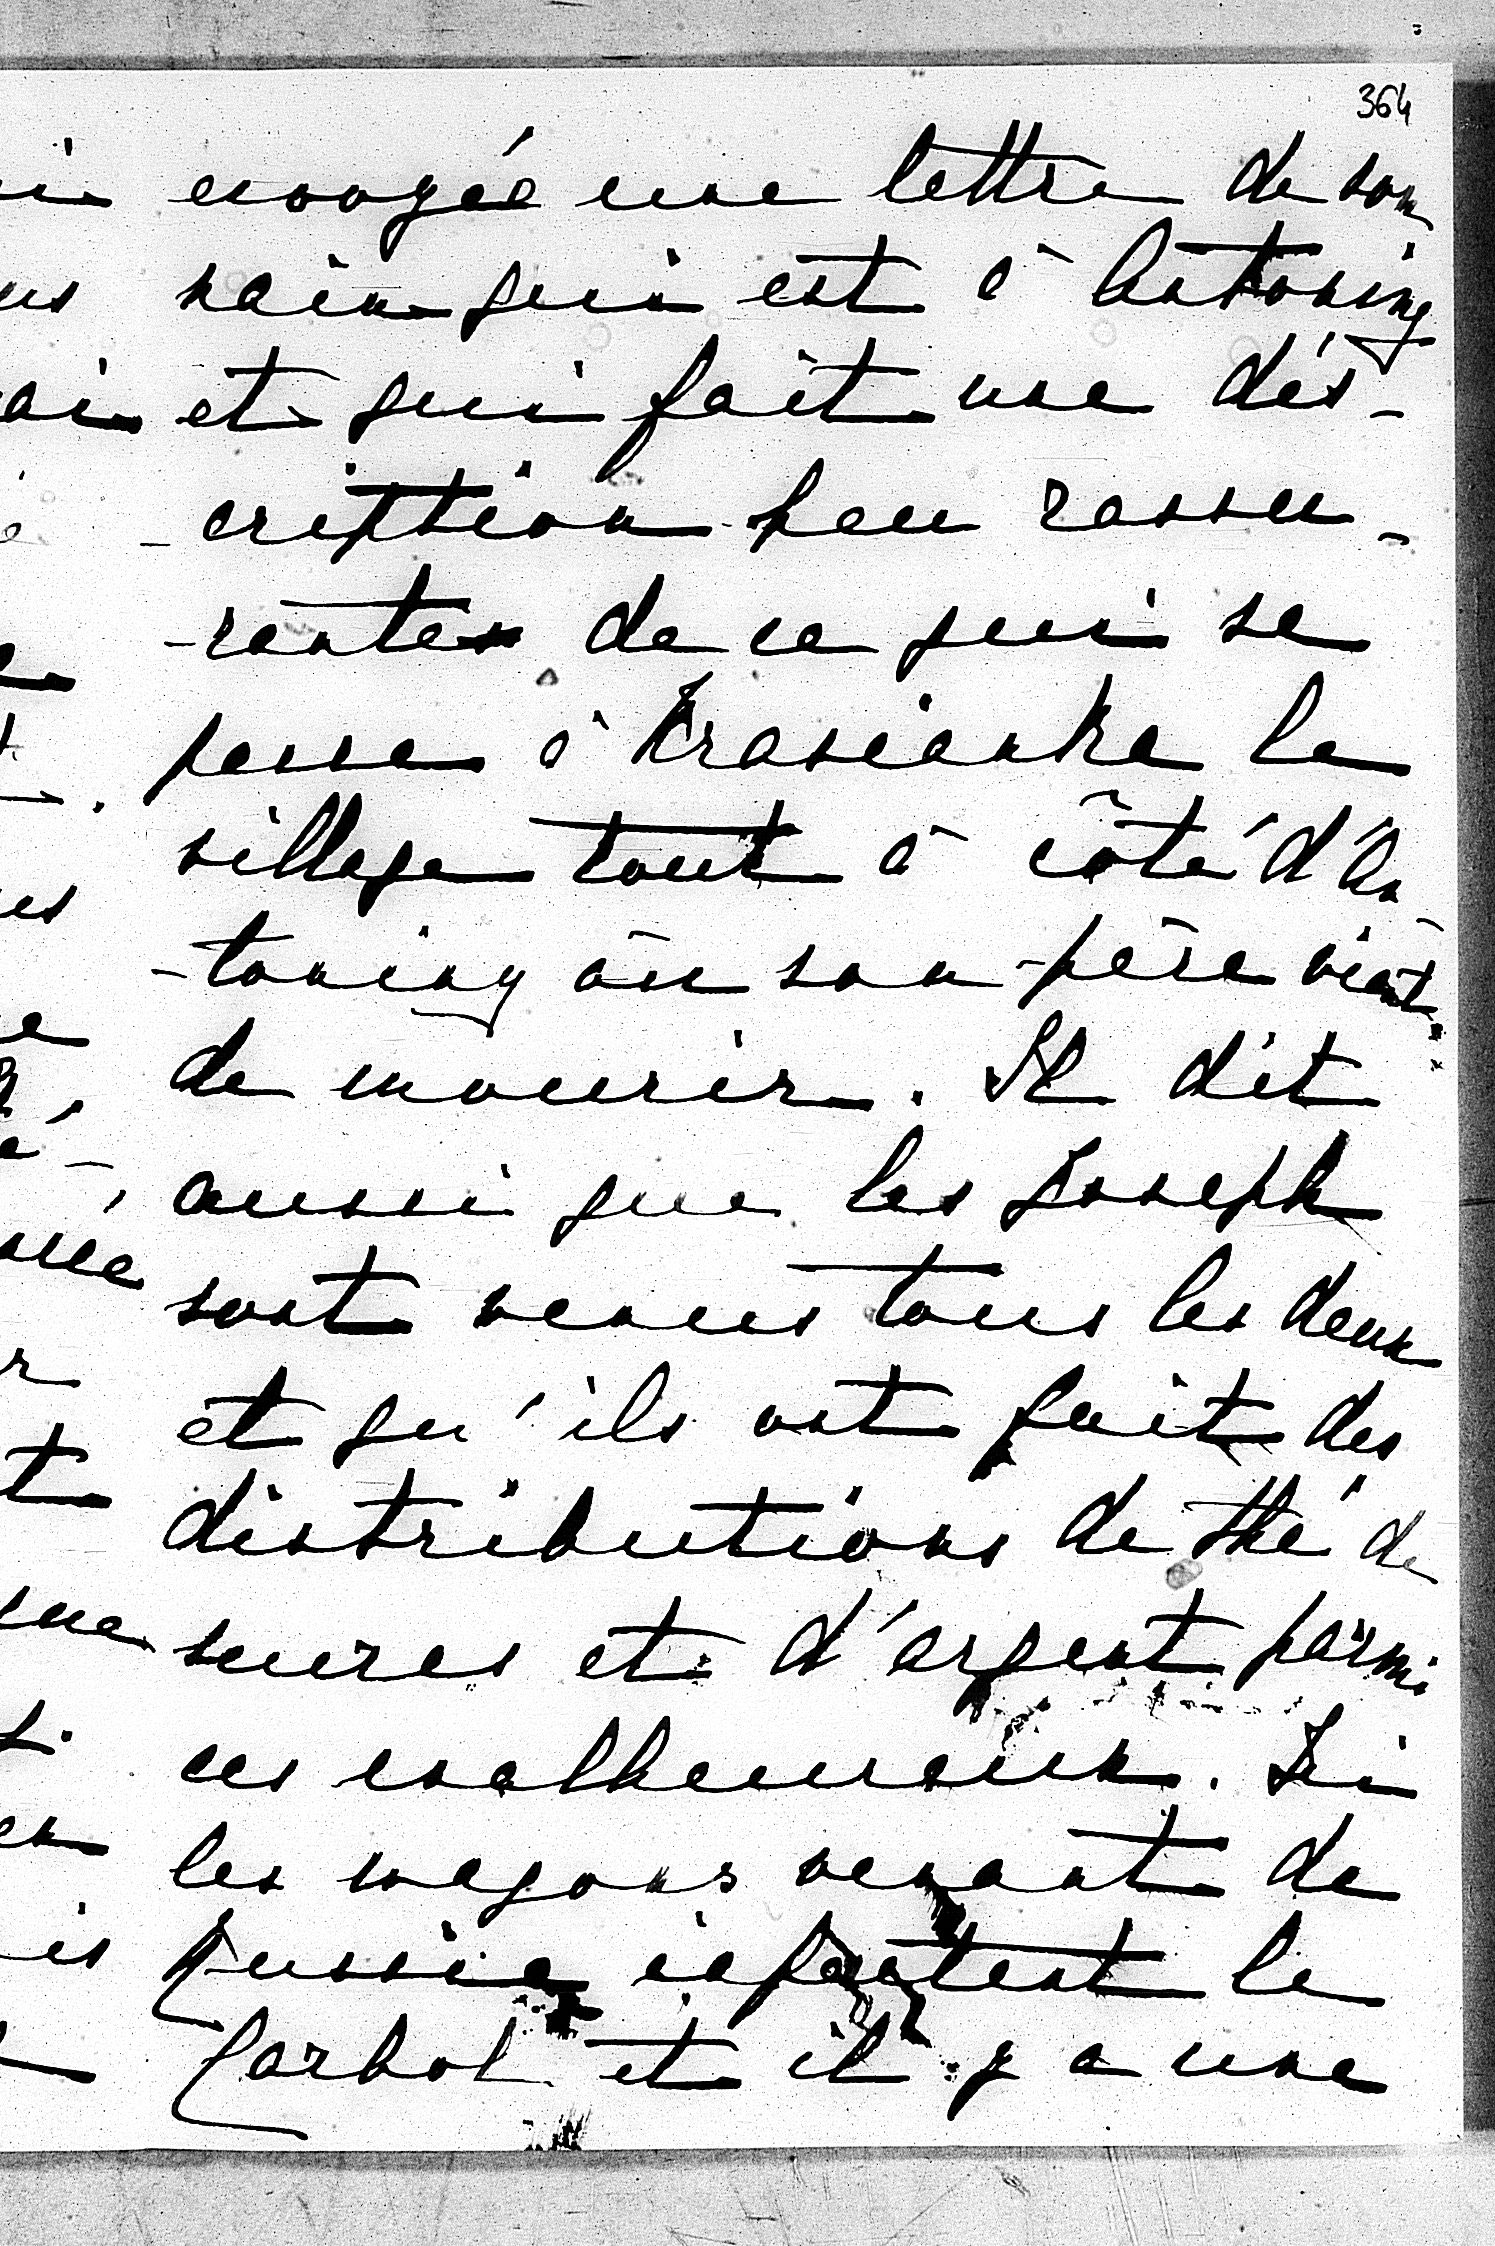 364
envoyée une lettre de son
nain qui est à Antoniny
et qui fait une dés-
-cription peu rassu-
-rante de ce qui se
passe à Krasienka le
village tout à côté d'An-
-toniny où son père vient
de mourir. Il dit
aussi que les Joseph
sont venus tous les deux
et qu'ils ont fait des
distributions de thé de
sucres et d'argent parmi
ces malheureux. Ici
les wagons venant de
Russie infectent le
Carbol et il y a une